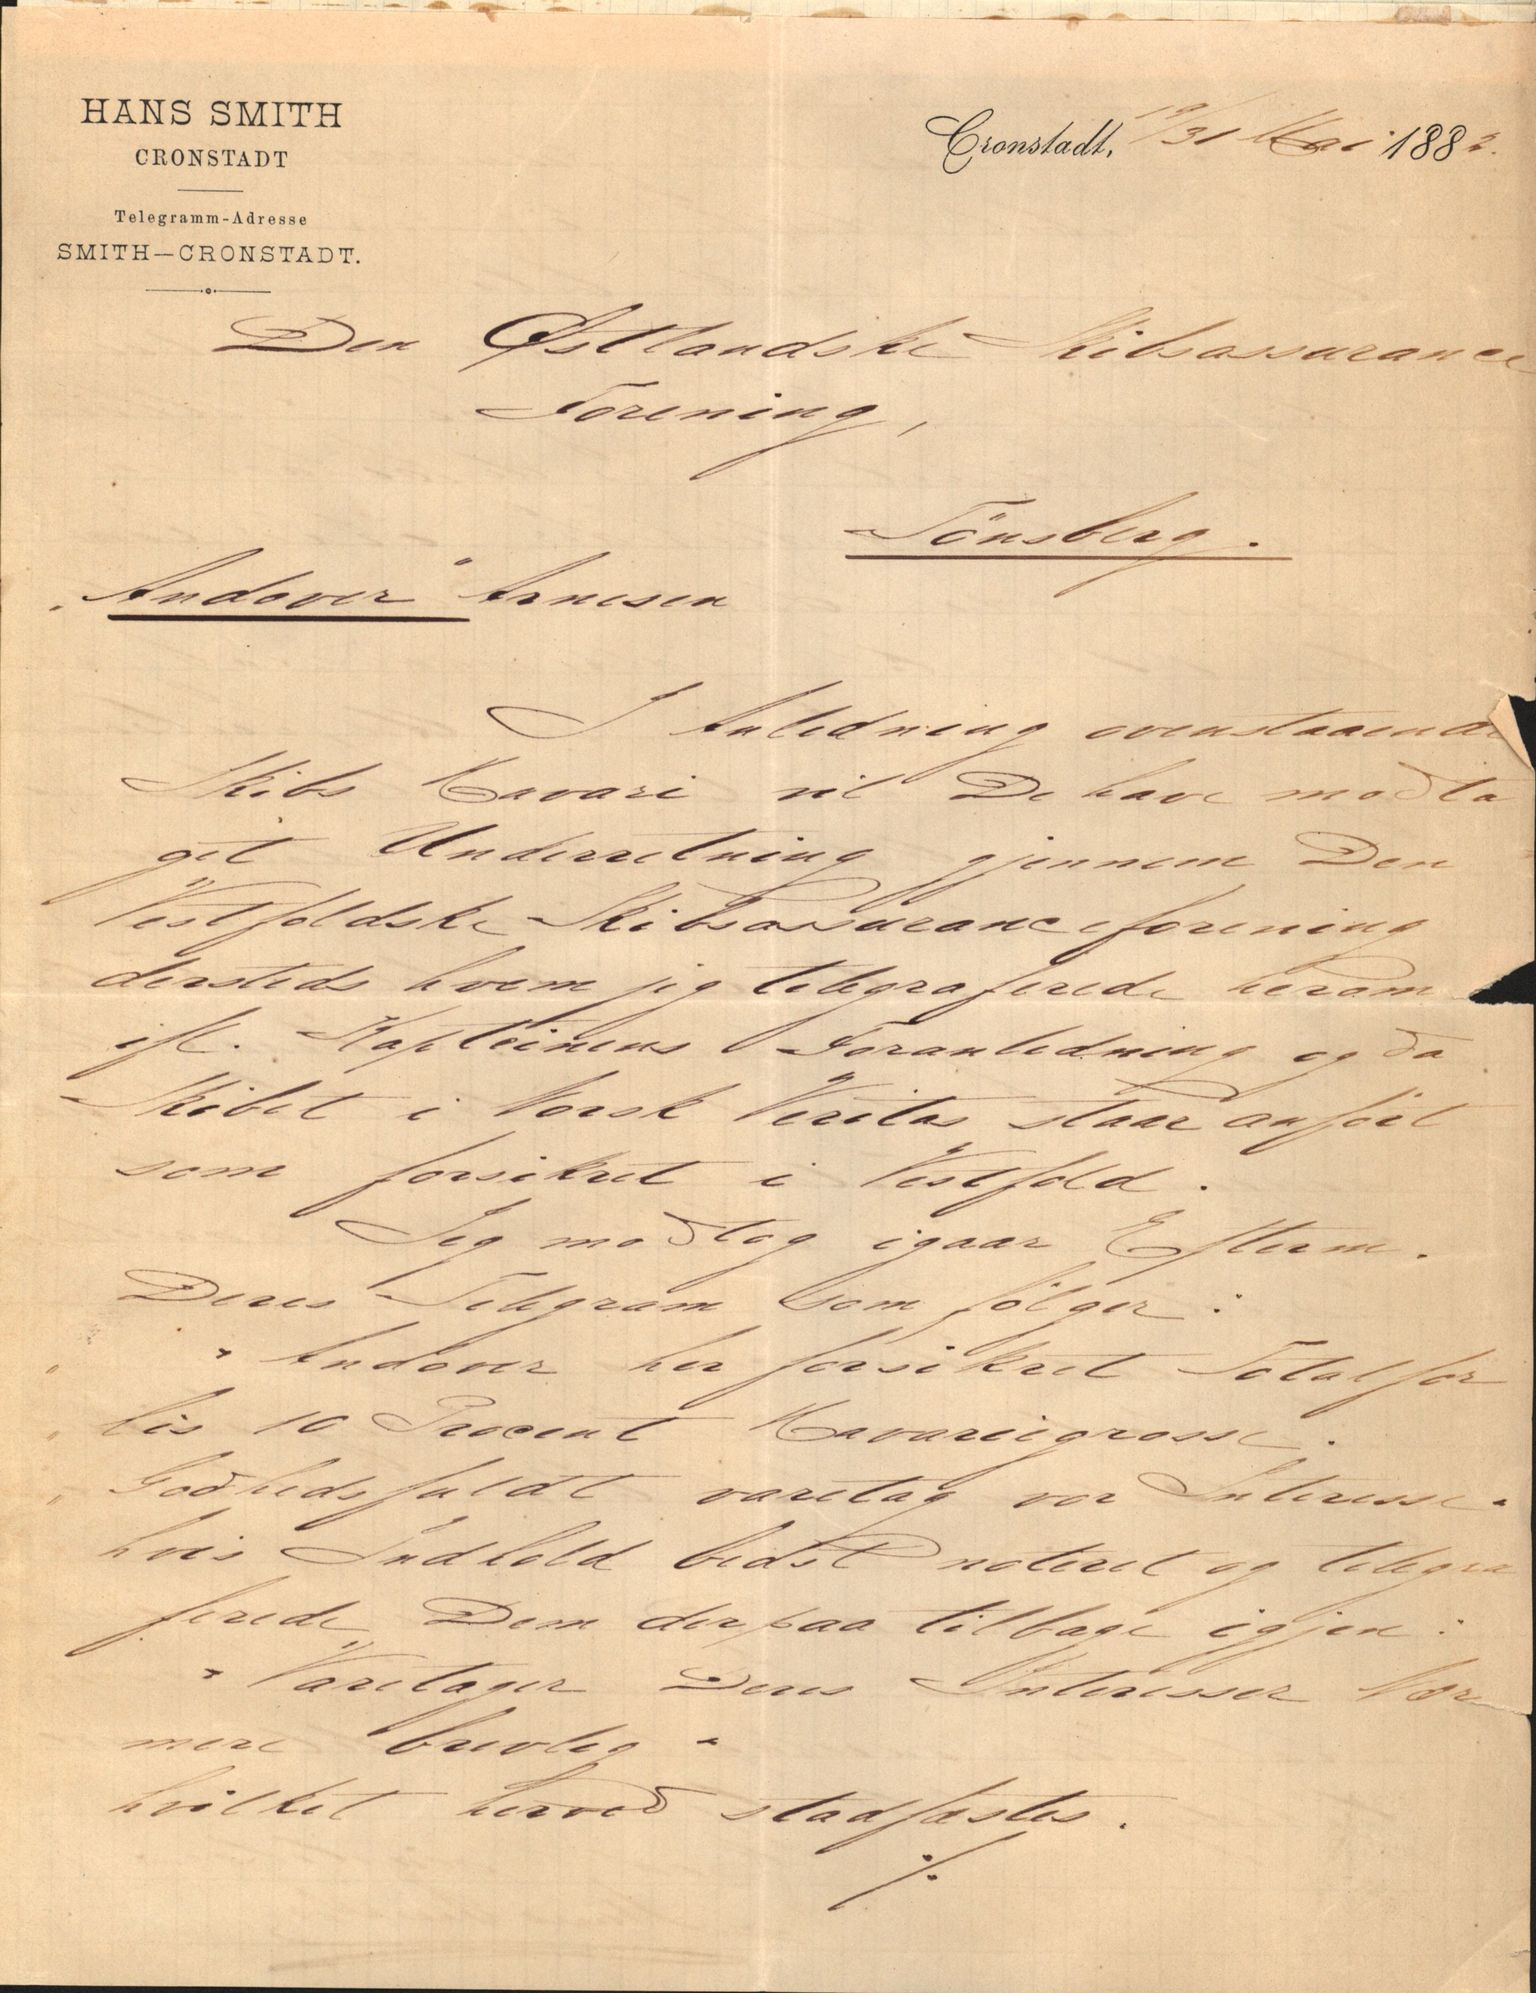 HANS SMITH
CRONSTADT
Telegramm-Adresse
SMITH—CRONSTADT.
Cronstadt, 19/31 Mai 1882.
Den Østlandske Skibsassurance
Forening,
Tönsberg.
„Andover" Arnesen
I Anledning ovenstaaende
Skibs Havari vil De have modta
get Underretning gjennem Den
Vestfoldske Skibsassuranceforening
dersteds hvem jeg telegraferede herom
ifl. Kapteinens Foranledning og da
Skibet i Norsk Veritas staar anfört
som forsikret i Vestfold.
Jeg modtog igaar Efterm.
Deres Telegram som fölger:
" "Andover her forsikret Totalfor
" lis 10 Procent Havariegrosse.
" Godhedsfuldt varetag vor Interesse"
hvis Indhold bedst noteret og telegra
ferede Dem derpaa tilbage igjen:
"Varetager Deres Interesser Nær
mere brevleg"
hvilket herved stadfæstes.
./.